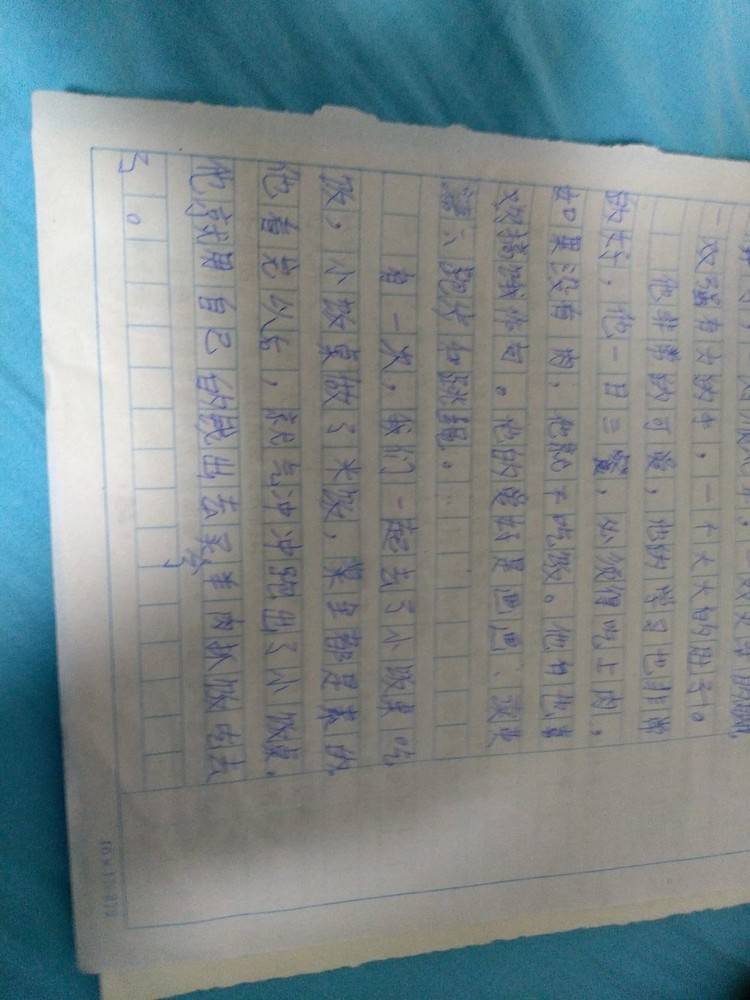 一双强有力的手，一个大大的肚子。
他非常的可爱，他的学习也非常
的好，他一日三餐，必须得吃上肉，
如果没有肉，他就不吃饭。他有他喜
。他的爱好是画画、
跑步和跳绳。
有一次，我们一起去了小饭桌吃
饭，小饭桌做了米饭，菜全都是素的，
他看完以后，就气冲冲跑出了小饭桌，
他就用自己的钱出去买羊肉抓饭吃去
了。